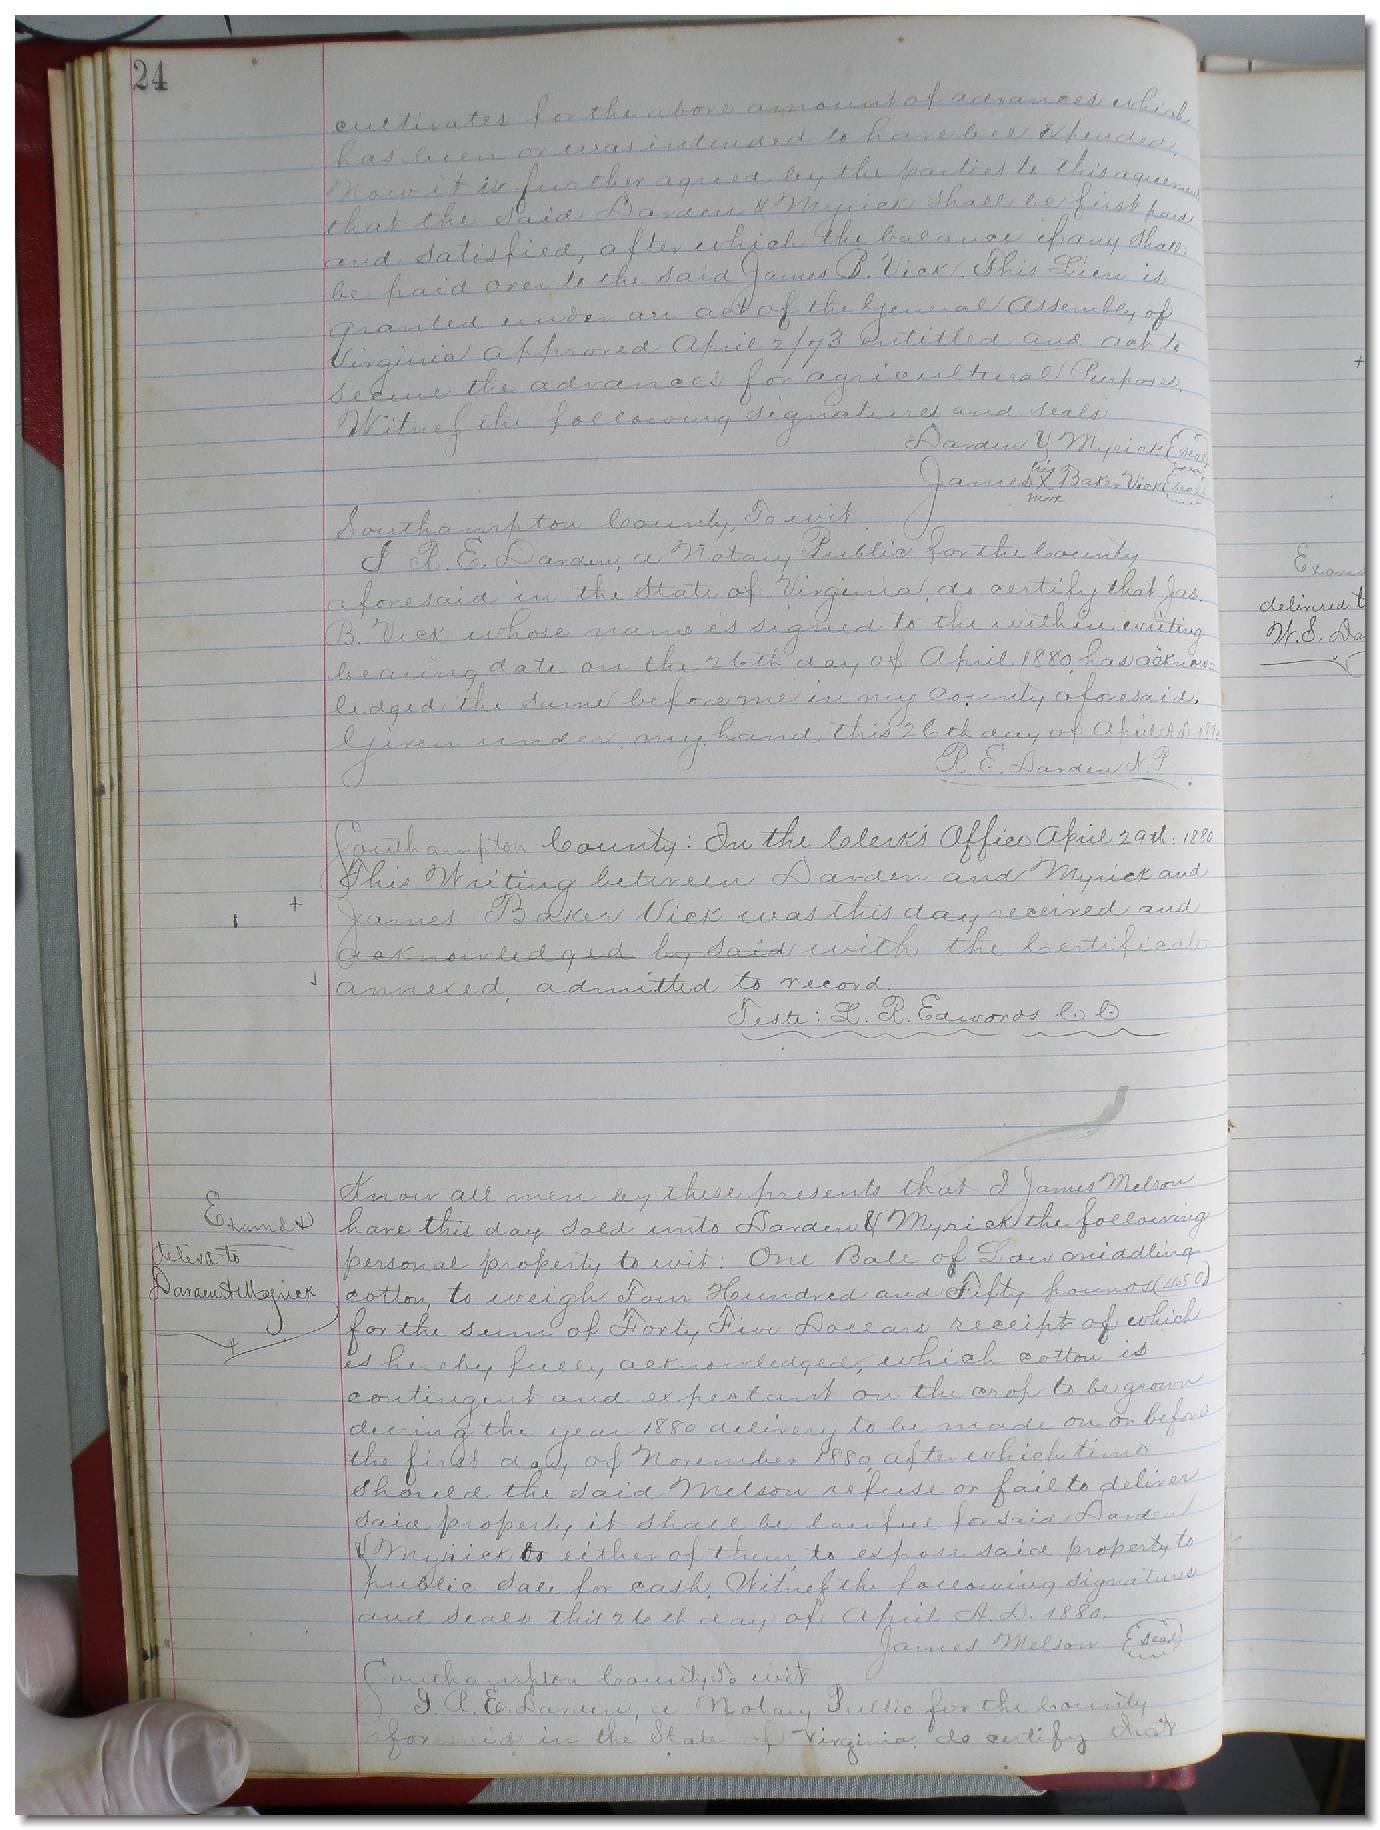 24
cultivates for the above amount of advances which
has been or was intended to have bee expended.
Now it is further agreed by the parties to this agreement
that the said Darden & Myrick shall be first paid
and satisfied, after which the balance if any shall
be paid over to the said James B. Vick. This Lien is
granted under an act of the General Assembly of
Virginia approved April 2/73 entitled and act to
secure the advances for agricultural Purposes.
Witness the following signatures and seals
Darden & Myrick (seal)
his
James X Baker Vick (seal)
mark
Southampton County, To wit
I R. E. Darden, a Notary Public for the County
aforesaid in the State of Virginia, do certify that Jas.
B. Vick whose name is signed to the within writing
bearing date on the 26th day of April 1880, has acknow-
ledged the same before me in my County aforesaid.
Given under my hand this 26th day of April A.D. 1880
R. E. Darden N P
Southampton County: In the Clerk's Office April 29th. 1880
This Writing between Darden and Myrick and
James Baker Vick was this day received and
acknowledged by said with the Certificate
annexed, admitted to record.
Teste: L. R. Edwards C. C.
Know all men by these presents that I James Melson
have this day sold unto Darden & Myrick the following
personal property to wit: One Bale of Low middling
cotton, to weigh Four Hundred and Fifty pounds (450)
for the sum of Forty Five Dollars receipt of which
is hereby fully acknowledged, which cotton is
contingent and expectant on the crop to be grown
during the year 1880 delivery to be made on or before
the first day of November 1880, after which time
should the said Melson refuse or fail to deliver
said property it shall be lawful for said Darden
& Myrick to either of them, to expose said property to
public sale for cash. Witness the following signatures
and seals this 26th day of April A. D. 1880.
James Melson (seal)
Southampton County, To wit
I. R. E. Darden, a Notary Public for the County
aforesaid in the State of Virginia, do certify that
Examd &
delivd to
Darden & Myrick
Exam
delivered t
W. S. Da